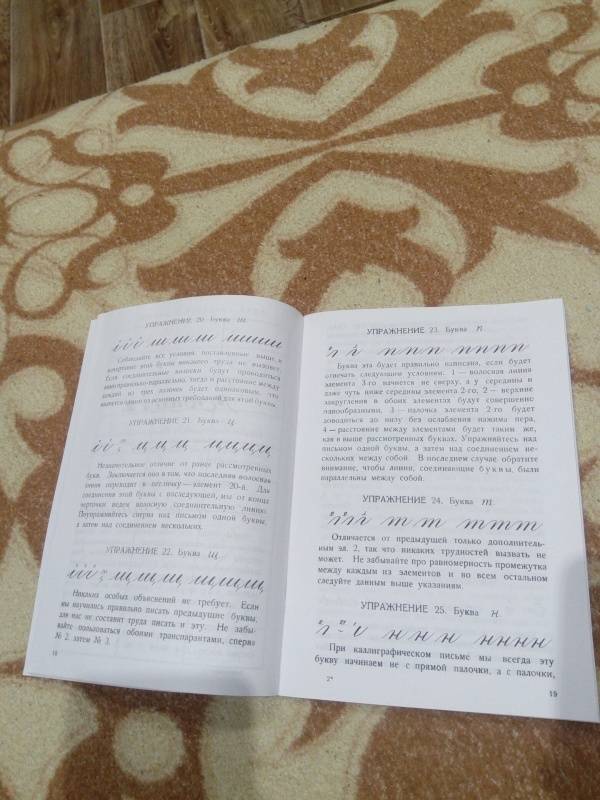 УПРАЖНЕНИЕ 20. Буква ш.
ш ш ш ш ш ш ш
Соблюдайте все условия, поставленные выше, и
начертание этой буквы никакого труда не вызовет.
Если соединительные волоски будут проводиться
между
каждой из трех палочек будет одинаковым, что
является одним из основных требований для этой буквы.
УПРАЖНЕНИЕ 21. Буква ц.
ц ц ц ц ц ц ц
Незначительное отличие от ранее рассмотренных
букв. Заключается оно в том, что последняя волосная
линия переходит в петличку—элемент 20-й. Для
соединения этой буквы с последующей, мы от конца
черточки ведем волосную соединительную линию.
Поупражняйтесь сперва над письмом одной буквы,
а затем над соединением нескольких.
УПРАЖНЕНИЕ 22. Буква щ.
щ щ щ щ щ щ щ
Никаких особых объяснений не требует. Если
мы научились правильно писать предыдущие буквы,
для нас не составит труда писать и эту. Не забы-
вайте пользоваться обоими транспарантами, сперва
№ 2, затем № 3.
18
УПРАЖНЕНИЕ 23. Буква п.
п п п п п п п
Буква эта будет правильно написана, если будет
отвечать следующим условиям: 1 — волосная линия
элемента 3-го начнется не сверху, а у середины и
даже чуть ниже середины элемента 2-го, 2 — верхние
закругления в обоих элементах будут совершенно
однообразными, 3 — палочка элемента 2-го будет
доводиться до низу без ослабления нажима пера,
4 — расстояние между элементами будет таким же,
как в выше рассмотренных буквах. Упражняйтесь над
письмом одной буквы, а затем над соединением не-
скольких между собой. В последнем случае обратите
внимание, чтобы линии, соединяющие буквы, были
параллельны между собой.
УПРАЖНЕНИЕ 24. Буква т.
т т т т т
Отличается от предыдущей только дополнитель-
ным эл. 2, так что никаких трудностей вызвать не
может. Не забывайте про равномерность промежутка
между каждым из элементов и во всем остальном
следуйте данным выше указаниям.
УПРАЖНЕНИЕ 25. Буква н.
н н н н н н н
При каллиграфическом письме мы всегда эту
букву начинаем не с прямой палочки, а с палочки,
2*
19